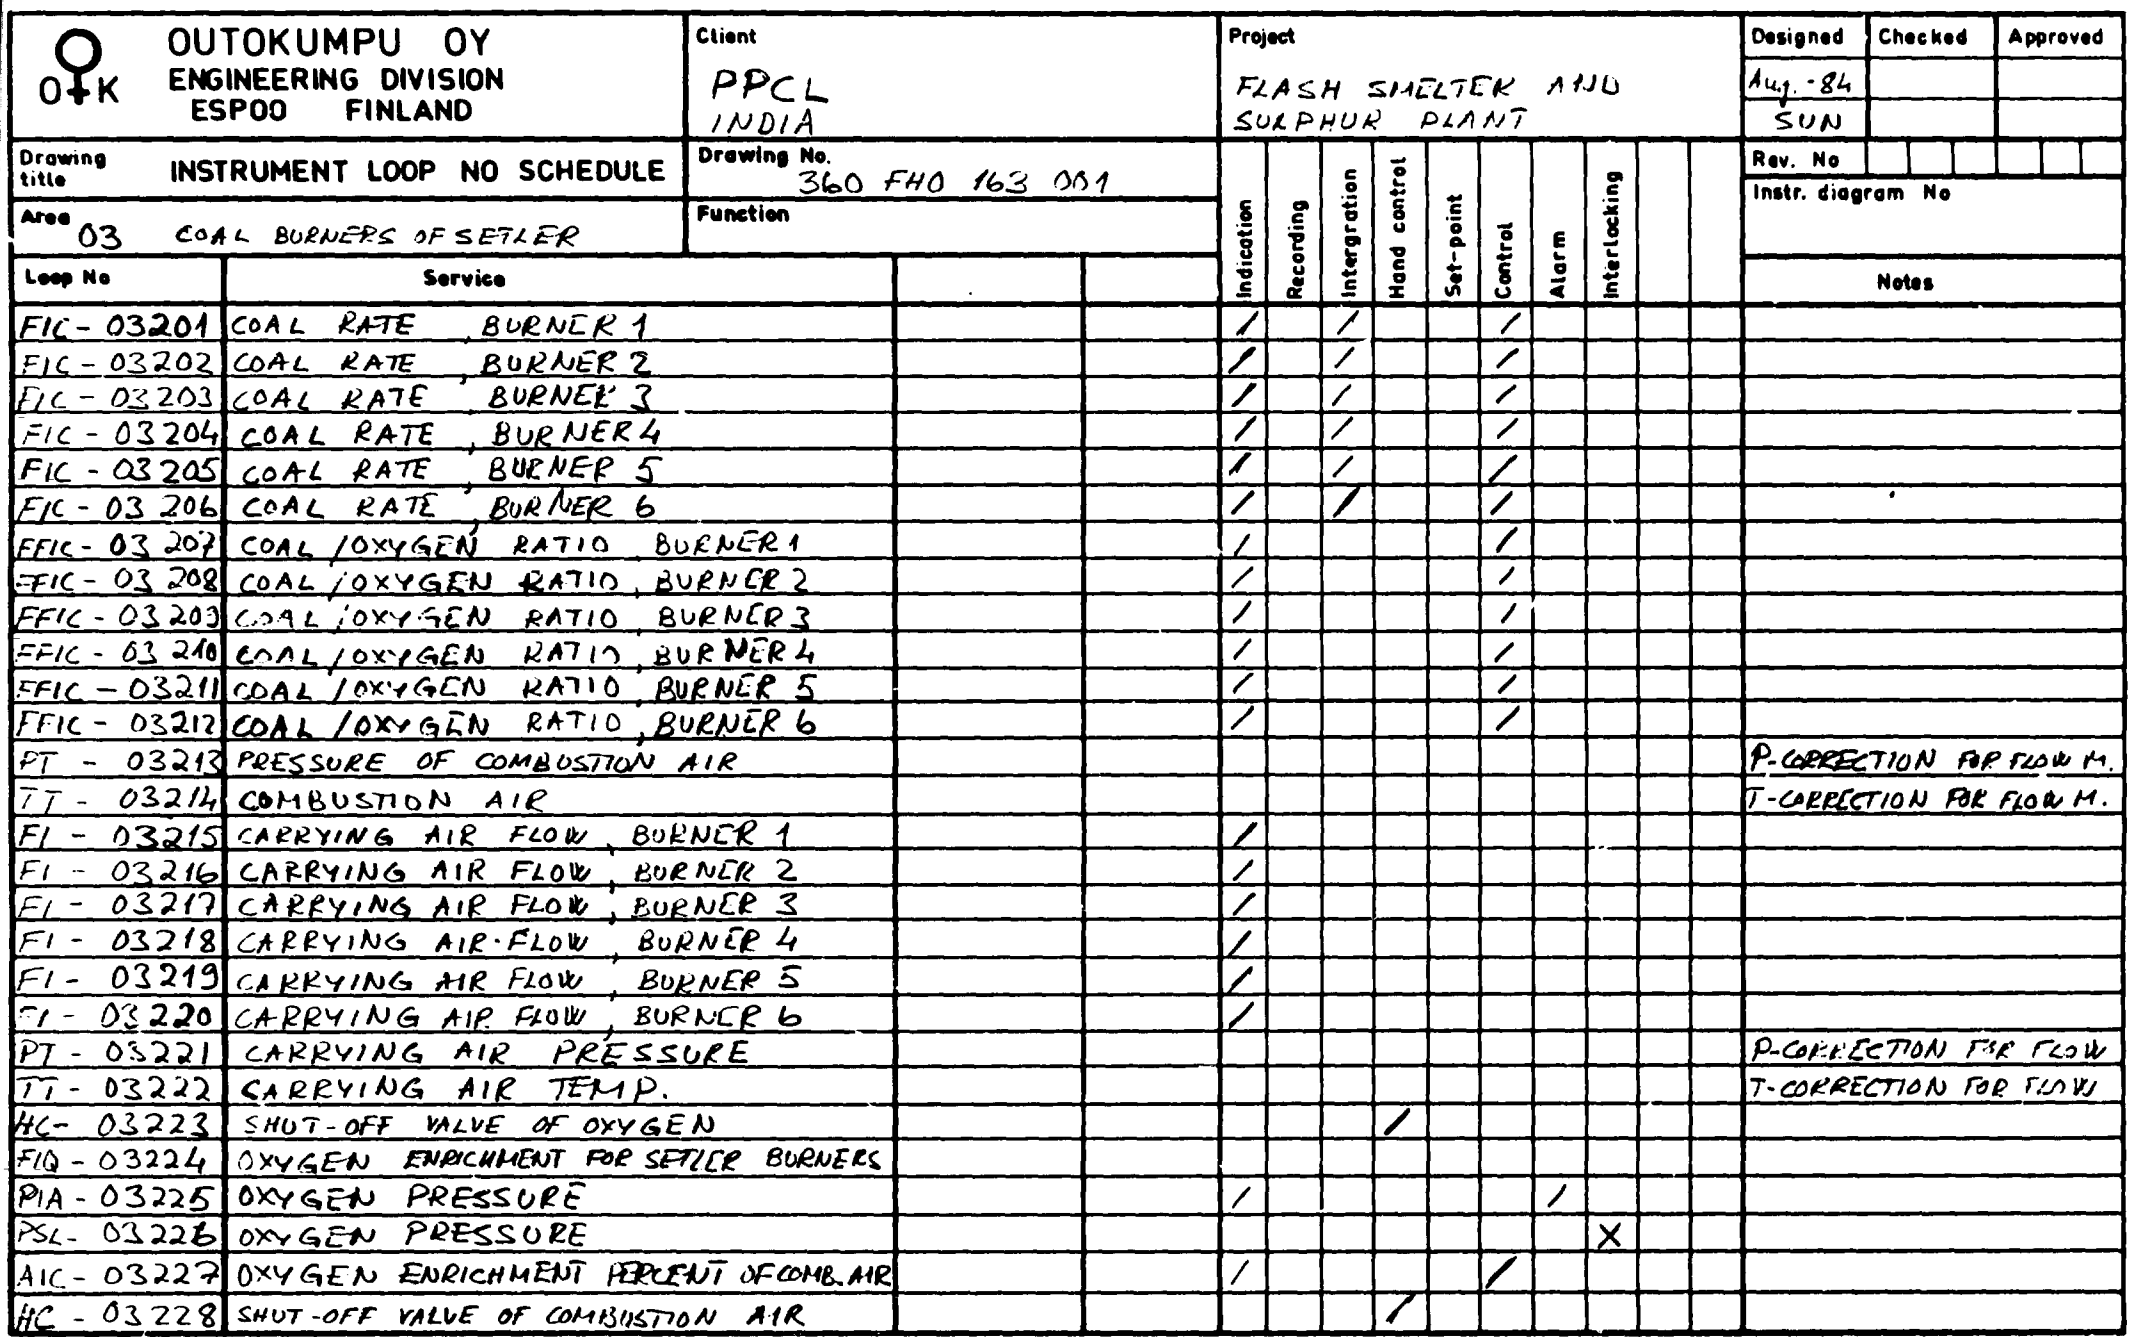 OUTOKUMPU OY
ENGINEERING DIVISION
ESPOO FINLAND
O K
Client
PPCL
INDIA
Project
FLASH SMELTER AND
SULPHUR PLANT
Designed Checked Approved
Aug. -84
SUN
Drawing title INSTRUMENT LOOP NO SCHEDULE
Drawing No.
360 FHO 163 001
Rev. No
Instr. diagram No
Area 03 COAL BURNERS OF SETLER
Function
Loop No Service Indication Recording Intergration Hand control Set-point Control Alarm Interlocking Notes
FIC - 03201 COAL RATE , BURNER 1 / / /
FIC - 03202 COAL RATE , BURNER 2 / / /
FIC - 03203 COAL RATE BURNER 3 / / /
FIC - 03204 COAL RATE , BURNER 4 / / /
FIC - 03205 COAL RATE , BURNER 5 / / /
FIC - 03206 COAL RATE , BURNER 6 / / /
FFIC - 03207 COAL / OXYGEN RATIO , BURNER 1 / /
FFIC - 03208 COAL / OXYGEN RATIO , BURNER 2 / /
FFIC - 03209 COAL / OXYGEN RATIO , BURNER 3 / /
FFIC - 03210 COAL / OXYGEN RATIO , BURNER 4 / /
FFIC - 03211 COAL / OXYGEN RATIO , BURNER 5 / /
FFIC - 03212 COAL / OXYGEN RATIO , BURNER 6 / /
PT - 03213 PRESSURE OF COMBUSTION AIR P-CORRECTION FOR FLOW M.
TT - 03214 COMBUSTION AIR T-CORRECTION FOR FLOW M.
FI - 03215 CARRYING AIR FLOW , BURNER 1 /
FI - 03216 CARRYING AIR FLOW , BURNER 2 /
FI - 03217 CARRYING AIR FLOW , BURNER 3 /
FI - 03218 CARRYING AIR FLOW , BURNER 4 /
FI - 03219 CARRYING AIR FLOW , BURNER 5 /
FI - 03220 CARRYING AIR FLOW , BURNER 6 /
PT - 03221 CARRYING AIR PRESSURE P-CORRECTION FOR FLOW
TT - 03222 CARRYING AIR TEMP. T-CORRECTION FOR FLOW
HC - 03223 SHUT-OFF VALVE OF OXYGEN /
FIQ - 03224 OXYGEN ENRICHMENT FOR SETLER BURNERS
PIA - 03225 OXYGEN PRESSURE / /
PSL - 03226 OXYGEN PRESSURE X
AIC - 03227 OXYGEN ENRICHMENT PERCENT OF COMB. AIR / /
HC - 03228 SHUT-OFF VALVE OF COMBUSTION AIR /